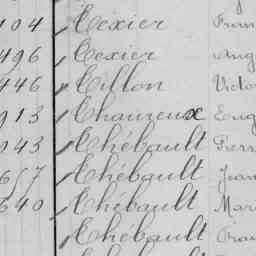 104 Texier Fran
496 Texier Aug
446 Tillon Victo
913 Thaireux Eug
043 Thébault Pierr
657 Thébault Jean
640 Thébault Mari
Thébault